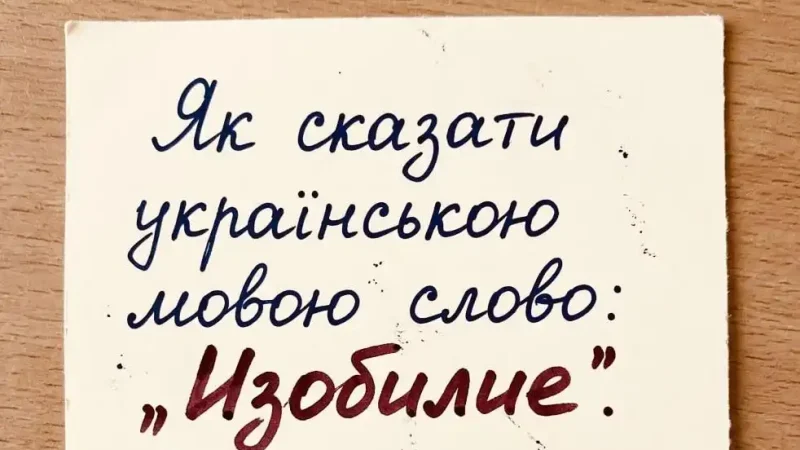 Як сказати
українською
мовою слово:
„Изобилие”.